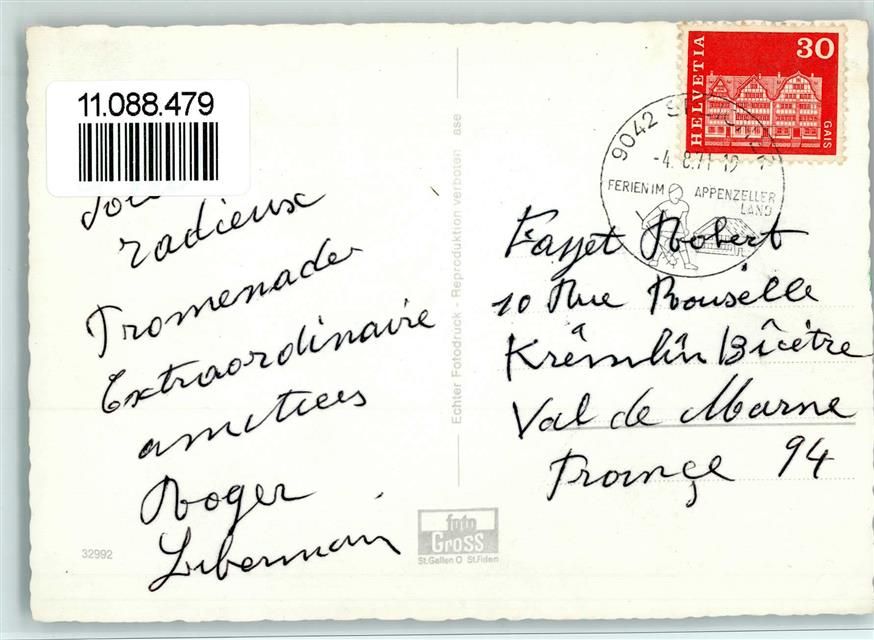 11.088.479
radieux
Promenade
Extraordinaire
amitiees
Roger
Libermain
32992
Echter Fotodruck - Reproduktion verboten ase
foto
Gross
St.Gallen O St.Fiden
HELVETIA
30
GAIS
9042
-4.8.71-19
FERIEN IM APPENZELLER
LAND
Fayet Robert
10 Rue Rouselle
Krêmlîn Bîcétre
Val de Marne
France 94